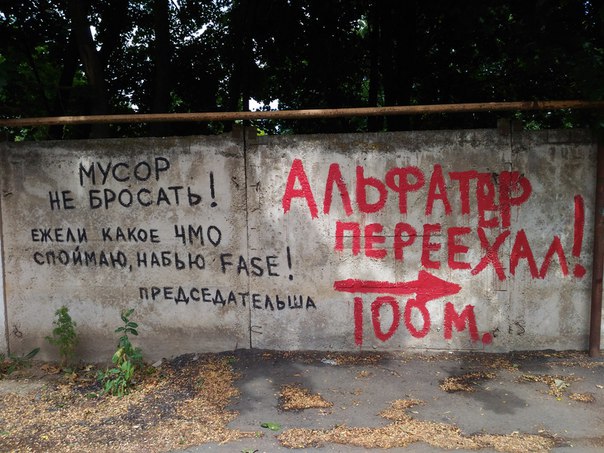 МУСОР
НЕ БРОСАТЬ!
ЕЖЕЛИ КАКОЕ ЧМО
СПОЙМАЮ, НАБЬЮ FASE!
ПРЕДСЕДАТЕЛЬША
АЛЬФАТЕР
ПЕРЕЕХАЛ!
100 М.